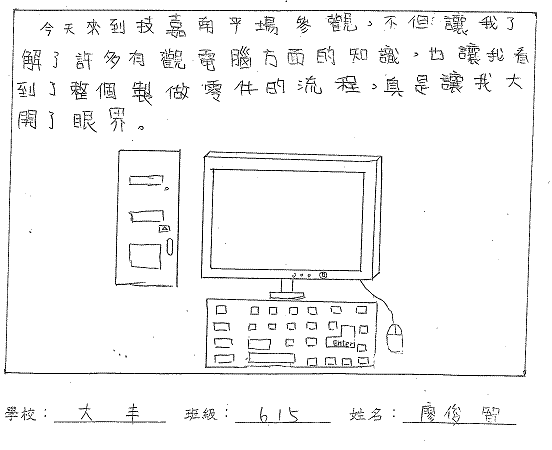 今天來到技嘉南平場參觀，不但讓我了
解了許多有觀電腦方面的知識，也讓我看
到了整個製做零件的流程，真是讓我大
開了眼界。
Enter
學校：大丰 班級：615 姓名：廖俊